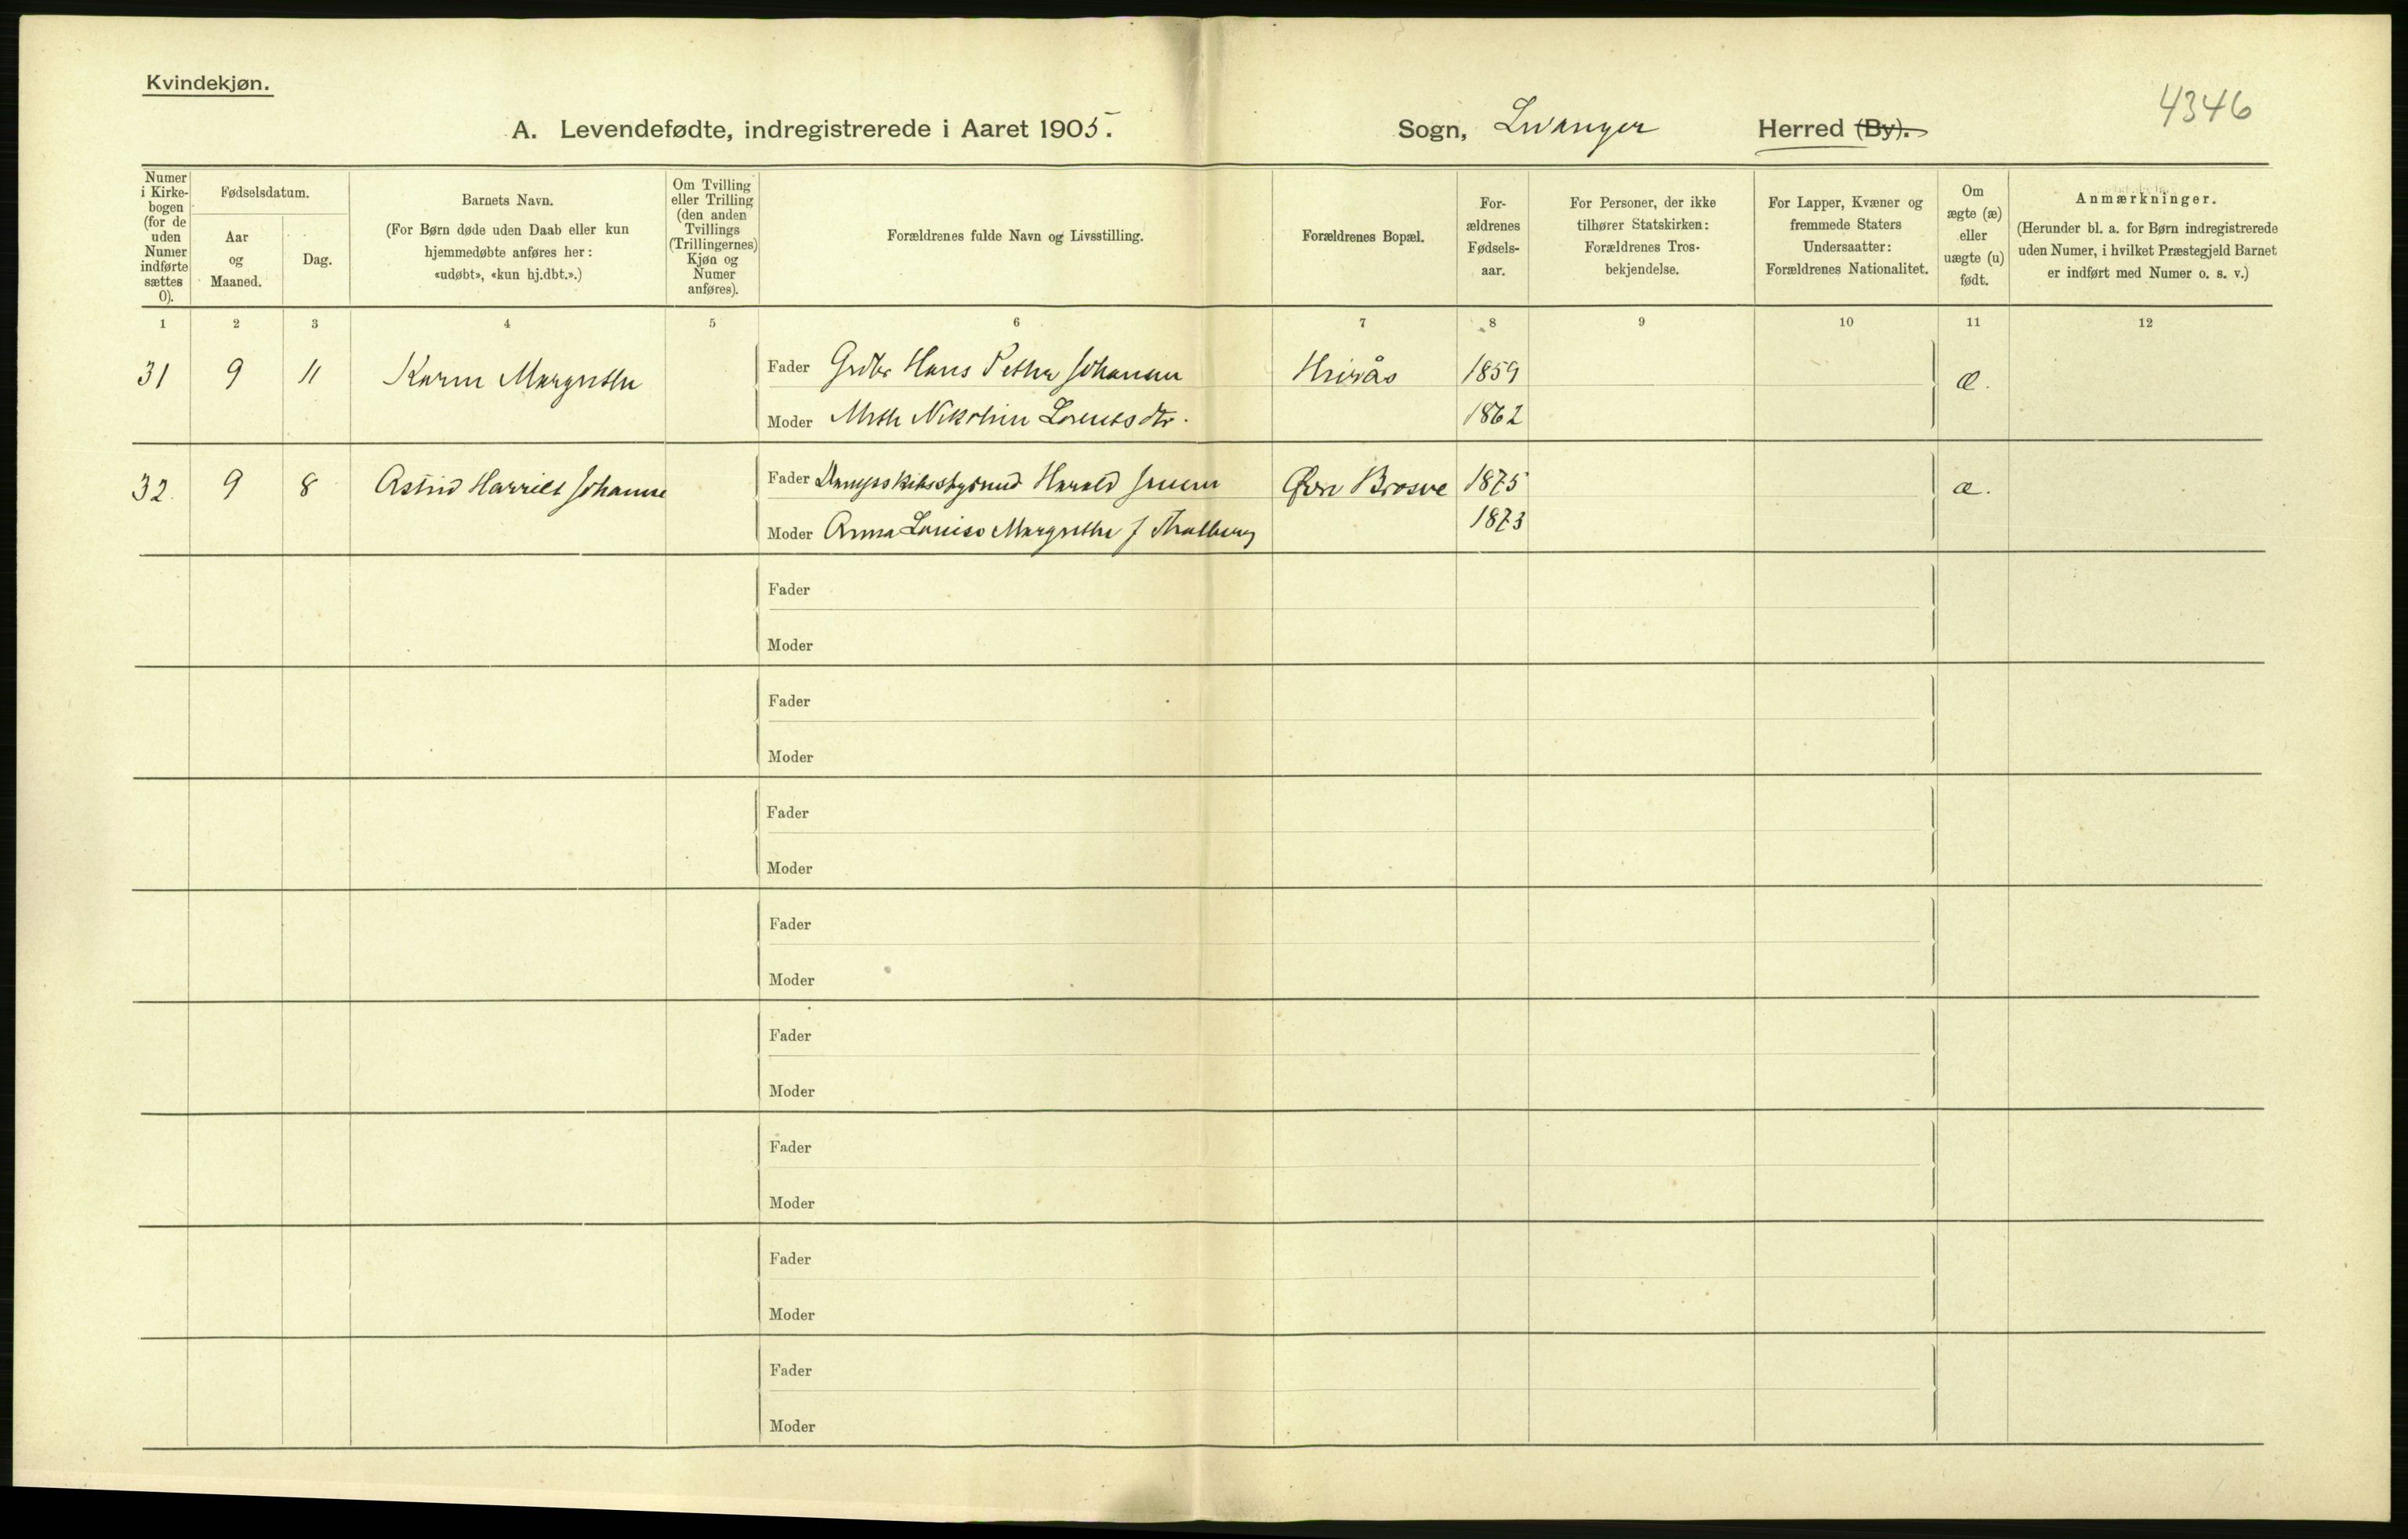 Kvindekjøn.
4346
A. Levendefødte, indregistrerede i Aaret 1905. Sogn, Levanger Herred (By).
Numer i Kirkebogen (for de uden Numer indførte sættes 0).
Fødselsdatum.
Aar og Maaned.
Dag.
Barnets Navn.
(For Børn døde uden Daab eller kun hjemmedøbte anføres her: «udøbt», «kun hj.dbt.».)
Om Tvilling eller Trilling (den anden Tvillings (Trillingernes) Kjøn og Numer anføres).
Forældrenes fulde Navn og Livsstilling.
Forældrenes Bopæl.
Forældrenes Fødselsaar.
For Personer, der ikke tilhører Statskirken: Forældrenes Trosbekjendelse.
For Lapper, Kvæner og fremmede Staters Undersaatter: Forældrenes Nationalitet.
Om ægte (æ) eller uægte (u) født.
Anmærkninger.
(Herunder bl. a. for Børn indregistrerede uden Numer, i hvilket Præstegjeld Barnet er indført med Numer o. s. v.)
1 2 3 4 5 6 7 8 9 10 11 12
31 9 11 Karen Margrethe Fader Grdbr Hans Petter Johansen 1859 æ.
Moder Nikoline Lorentsdtr. 1862
32. 9 8 Astrid Harriet Johanne Fader Dampskibsstyrmd Harald Jensen Øvre Brosve 1875 æ.
Moder Anna Louise Margrethe f Thalberg 1873
Fader
Moder
Fader
Moder
Fader
Moder
Fader
Moder
Fader
Moder
Fader
Moder
Fader
Moder
Fader
Moder